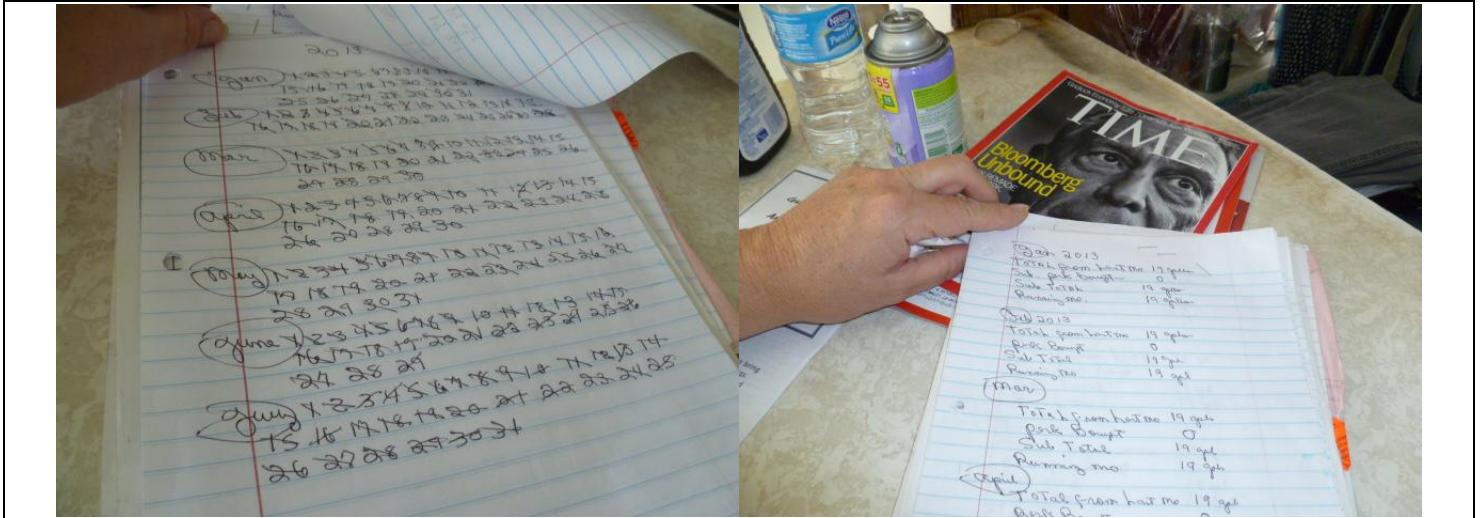 2013
Jan 1 2 3 4 5 6 7 8 9 10 11
15 16 17 18 19 20 21 22
25 26 27 28 29 30 31
Feb 1 2 3 4 5 6 7 8 9 10 11 12 13 14 15
16 17 18 19 20 21 22 23 24 25 26 27 28
Mar 1 2 3 4 5 6 7 8 9 10 11 12 13 14 15
16 17 18 19 20 21 22 23 24 25 26
27 28 29 30
April 1 2 3 4 5 6 7 8 9 10 11 12 13 14 15
16 17 18 19 20 21 22 23 24 25
26 27 28 29 30
May 1 2 3 4 5 6 7 8 9 10 11 12 13 14 15 16
17 18 19 20 21 22 23 24 25 26 27
28 29 30 31
June 1 2 3 4 5 6 7 8 9 10 11 12 13 14 15
16 17 18 19 20 21 22 23 24 25 26
27 28 29
July 1 2 3 4 5 6 7 8 9 10 11 12 13 14
15 16 17 18 19 20 21 22 23 24 25
26 27 28 29 30 31
Nestle
Pure Life
55
TIME
Bloomberg
Unbound
Jan 2013
Total from last mo 19 gals
Sub Bought 0
Sub Total 19 gals
Running mo. 19 gallon
Feb 2013
Total from last mo 19 gals
Bought 0
Sub Total 19 gal
Running mo 19 gal
Mar
Total from last mo 19 gals
Bought 0
Sub Total 19 gal
Running mo. 19 gals
April
Total from last mo 19 gals